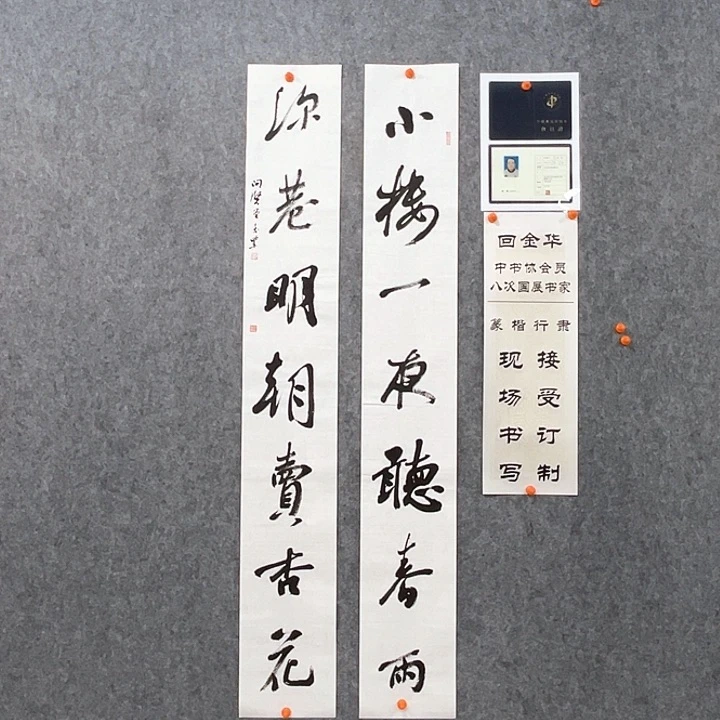 小楼一夜聽春雨
深巷明朝賣杏花
回金华
中书协会员
八次国展书家
篆楷行隶
接受订制
现场书写